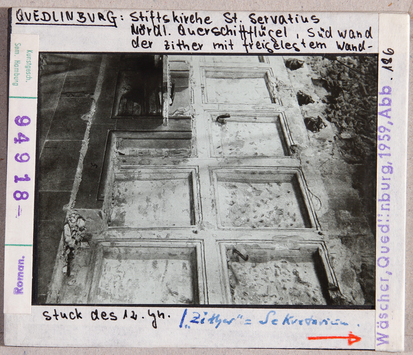 QUEDLINBURG: Stiftskirche St. Servatius
Nördl. Querschiffflügel, Südwand
der Zither mit freigelegtem Wand-
stuck des 12. Jh.
/"Zither" = Sekretarium.
Kunstgesch.
Sem. Hamburg
94918-
Roman.
Wäscher, Quedlinburg, 1959, Abb. 186